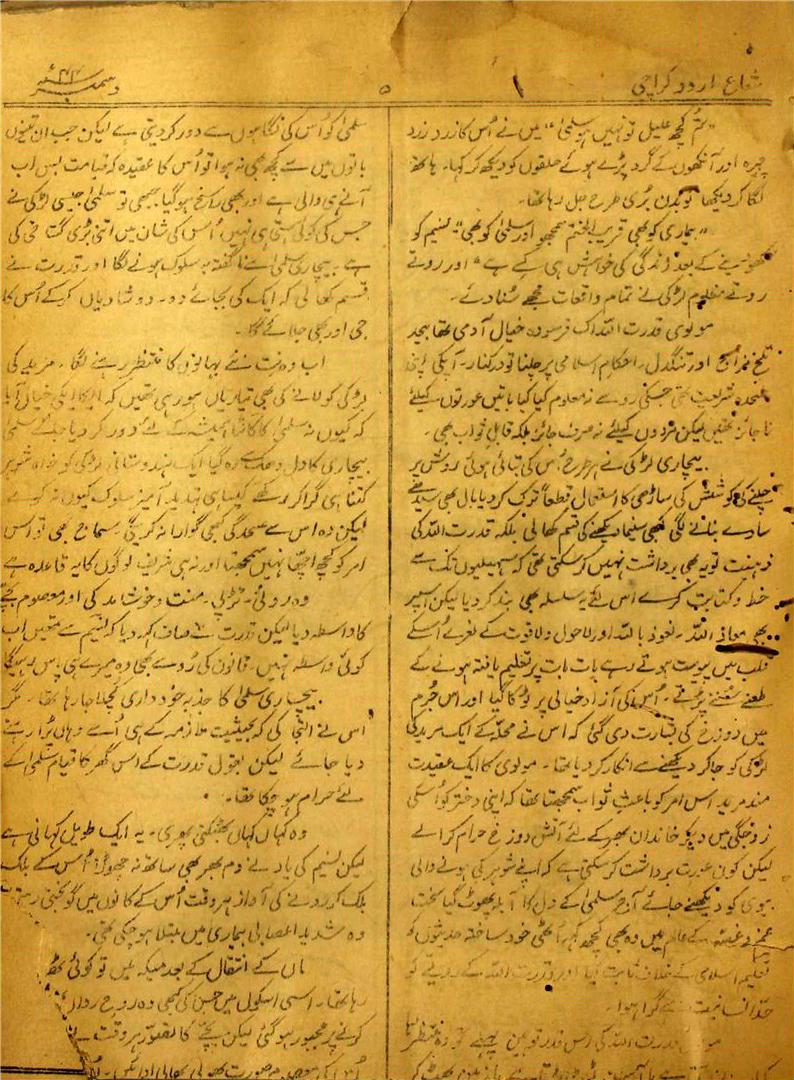 شعاع اردو کراچی
۵
دسمبر ۴۴ء
"تم کچھ علیل تو نہیں ہو سلمیٰ" میں نے اُس کا زرد زرد
چہرہ اور آنکھوں کے گرد پڑے ہوئے حلقوں کو دیکھ کر کہا۔ ہاتھ
لگا کر دیکھا تو بدن بُری طرح جل رہا تھا۔
"بیماری کو بھی قریب الختم سمجھو اور سلمیٰ کو بھی" نسیم کو
کھو دینے کے بعد زندگی کی خواہش ہی کسے ہے" اور روتے
روتے مظلوم لڑکی نے تمام واقعات مجھے سُنا دئے۔
مولوی قدرت اللہ اک فرسودہ خیال آدمی تھا بیحد
تلخ مزاج اور تنگدل۔ احکام اسلامی پر چلنا تو درکنار۔ آپکی اپنی
علیحدہ شریعت تھی جسکی رو سے نہ معلوم کیا کیا باتیں عورتوں کیلئے
نا جائز تھیں لیکن مردوں کیلئے نہ صرف جائز بلکہ قابل ثواب تھی۔
بیچاری لڑکی نے ہر طرح اُس کی بتائی ہوئی روش پر
چلنے کی کوشش کی ساڑھی کا استعمال قطعاً ترک کر دیا بال بھی سیدھے
سادے بنانے لگی کبھی سنیما دیکھنے کی قسم کھا لی بلکہ قدرت اللہ کی
ذہنیت تو یہ بھی برداشت نہیں کر سکتی تھی کہ سہیلیوں تک سے
خط و کتابت کرے اس لئے یہ سلسلہ بھی بند کر دیا لیکن اسپر
بھی معاذ اللہ۔ نعوذ باللہ اور لاحول ولا قوت کے نعرے اُسکے
قلب میں پیوست ہوتے رہے بات بات پر تعلیم یافتہ ہونے کے
طعنے سُننے پڑتے۔ اُس کی آزاد خیالی پر ٹوکا گیا اور اس جُرم
میں دوزخ کی بشارت دی گئی کہ اس نے محلہ کے ایک مرید کی
لڑکی کو جا کر دیکھنے سے انکار کر دیا تھا۔ مولوی کا ایک عقیدت
مند مرید اس امر کو باعث ثواب سمجھتا تھا کہ اپنی دختر کو اُسکی
زوجگی میں دیکر خاندان بھر کے لئے آتش دوزخ حرام کرا لے
لیکن کون عورت برداشت کر سکتی ہے کہ اپنے شوہر کی ہونے والی
بیوی کو دیکھنے جائے آج سلمیٰ کے دل کا آبلہ پھوٹ گیا سخت
غم و غصہ کے عالم میں وہ بھی کچھ کہہ اُٹھی خود ساختہ حدیثوں کو
تعلیم اسلامی کے خلاف ثابت کیا اور قدرت اللہ کے رویّے کو
انسانیت سے گرا ہوا۔
قدرت اللہ کی اس قدر توہین پہلے تو وہ منتظر رہا
سلمیٰ کو اُس کی نگاہوں سے دور کر دیتی ہے لیکن جب ان تینوں
باتوں میں سے کچھ بھی نہ ہوا تو اُس کا عقیدہ کہ قیامت بس اب
آنے ہی والی ہے اور بھی راسخ ہو گیا جبھی تو سلمیٰ جیسی لڑکی نے
جس کی کوئی ہستی ہی نہیں اُس کی شان میں اتنی بڑی گستاخی کی
ہے بیچاری سلمیٰ سے نا گفتہ بہ سلوک ہونے لگا اور قدرت نے
قسم کھا لی کہ ایک کی بجائے دو۔ دو شادیاں کر کے اُس کا
جی اور بھی جلائے گا۔
اب وہ نت نئے بہانوں کا منتظر رہنے لگا۔ مرید کی
لڑکی کو لانے کی بھی تیاریاں ہو رہی تھیں کہ ایکا ایکی خیال آیا
کہ کیوں نہ سلمیٰ کا کانٹا ہمیشہ کے لئے دور کر دیا جائے سلمیٰ
بیچاری کا دل دھک سے رہ گیا ایک ہندوستانی لڑکی کو خواہ شوہر
کتنا ہی گرا کر رکھے کیسا ہی تہدید آمیز سلوک کیوں نہ کرے
لیکن وہ اس سے علیحدگی کبھی گوارا نہ کریگی۔ سماج بھی تو اس
امر کو کچھ اچھّا نہیں سمجھتا اور نہ ہی شریف لوگوں کا یہ قاعدہ ہے
وہ روئی۔ تڑپی۔ منت و خوشامد کی اور معصوم بچّے
کا واسطہ دیا لیکن قدرت نے صاف کہہ دیا کہ نسیم سے تمھیں اب
کوئی واسطہ نہیں۔ قانون کی رُو سے بھی وہ میرے ہی پاس رہیگا
بیچاری سلمیٰ کا جذبہ خود داری کُچلا جا رہا تھا۔ مگر
اس نے التجا کی کہ بحیثیت ملازمہ کے ہی اُسے وہاں پڑا رہنے
دیا جائے لیکن بقول قدرت کے اس گھر کا قیام سلمیٰ کے
لئے حرام ہو چکا تھا۔
وہ کہاں کہاں بھٹکتی پھری۔ یہ ایک طویل کہانی ہے
لیکن نسیم کی یاد نے دم بھر بھی ساتھ نہ چھوڑا اُس کے بلک
بلک کر رونے کی آواز ہر وقت اُس کے کانوں میں گونجتی رہتی
وہ شدید اعصابی بیماری میں مبتلا ہو چکی تھی۔
ماں کے انتقال کے بعد میکہ میں تو کوئی
رہا تھا۔ اسی اسکول میں جس کی کبھی وہ روح رواں
کرنے پر مجبور ہو گئی لیکن بچّے کا تصوّر ہر وقت
اُس کی معصوم صورت بھولی بھالی ادائیں۔